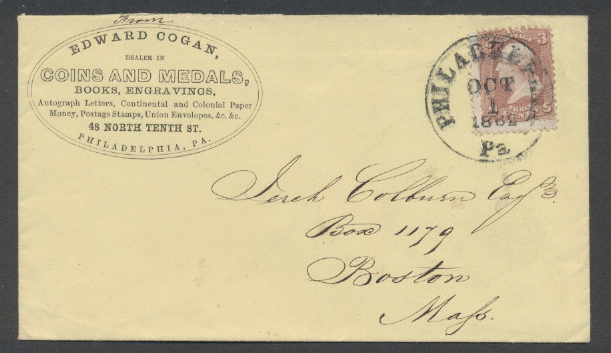 From
EDWARD COGAN,
DEALER IN
COINS AND MEDALS,
BOOKS, ENGRAVINGS,
Autograph Letters, Continental and Colonial Paper
Money, Postage Stamps, Union Envelopes, &c. &c.
48 NORTH TENTH ST.
PHILADELPHIA, PA.
PHILADELPHIA
OCT
1
1862
Pa
3
Jereh Colburn Esq.
Box 1179
Boston
Mass.